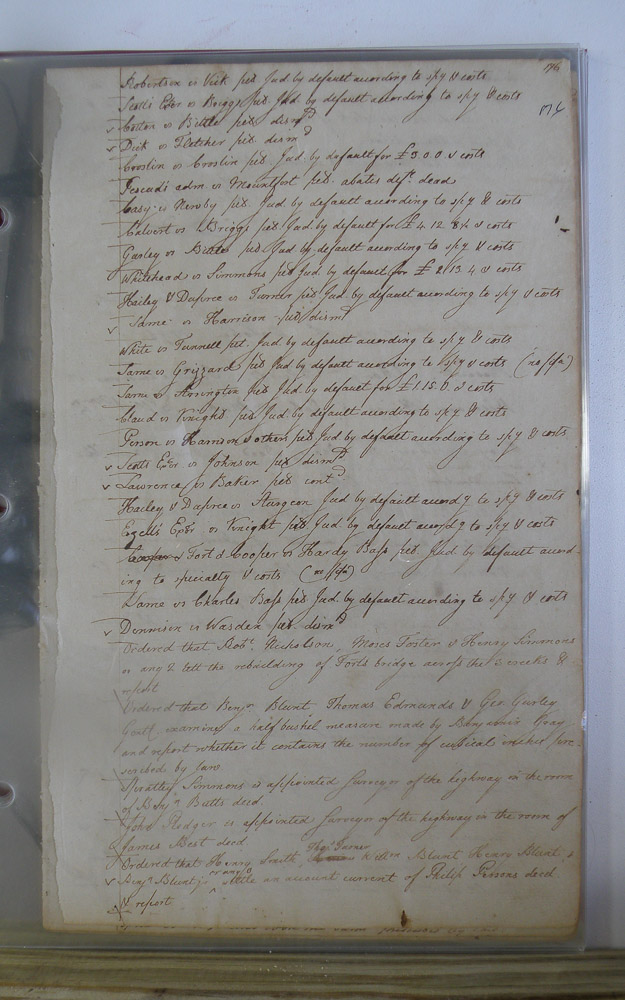 176
176
Robertson vs Vick pet Jud. by default according to spy & costs
Scotts Exer vs Briggs pet. Jud. by default according to spy & costs
vs Bittle pet dismd
Dick vs Fletcher pet dismd
Crosslin vs Crosslin pet. Jud. by default for £3 0 0 & costs
adm vs Mountfort pet. abates deft. dead
Casy vs Newby pet Jud by default according to spy & costs
Calvert vs Briggs pet. Jud. by default for £4 12 8½ & costs
Gurley vs Bittle pet. Jud by default according to spy. & costs
Whitehead vs Simmons pet Jud. by default for £2 13 4 & costs
Hailey & Dupree vs Turner pet Jud. by default according to spy & costs
Same vs Harrison pet dismd
White vs Tunnell pet. Jud by default according to spy & costs
Same vs Grizzard pet Jud by default according to spy & costs (no/ifa)
Same vs Arrington pet Jud. by default for £1.15.0 & costs
Claud vs Knight pet Jud by default according to spy. & costs
Person vs Harrison & others pet Jud by default according to spy & costs
Scotts Exer. vs Johnson pet dismd
Lawrence vs Baker pet contd
Hailey & Dupree vs Sturgeon Jud by default accordg to spy & costs
Ezell's Exer vs Knight pet Jud by default accordg to spy & costs
Fort & Cooper vs Hardy Bass pet Jud by default accord-
ing to specialty & costs (no/ifa)
Same vs Charles Bass pet Jud. by default according to spy & costs
Dennison vs Wasden pet dismd
Ordered that Robt. Nicholson, Moses Foster & Henry Simmons
or any 2 lett the rebuilding of Forts bridge across the 3 creeks &
report
Ordered that Benjn Blunt, Thomas Edmunds & Geo. Gurley
Gent. examine a half bushel measure made by Benjamin Gray
and report whether it contains the number of cubical inches pre-
scribed by law
Spratley Simmons is appointed Surveyor of the highway in the room
of Benjn Butts decd.
John Hodger is appointed Surveyor of the highway in the room of
James Best decd
Ordered that Henry Smith, Thos. Turner Blunt Henry Blunt &
Benjn Blunt jr or any 3 settle an account current of Philip Persons decd
& report